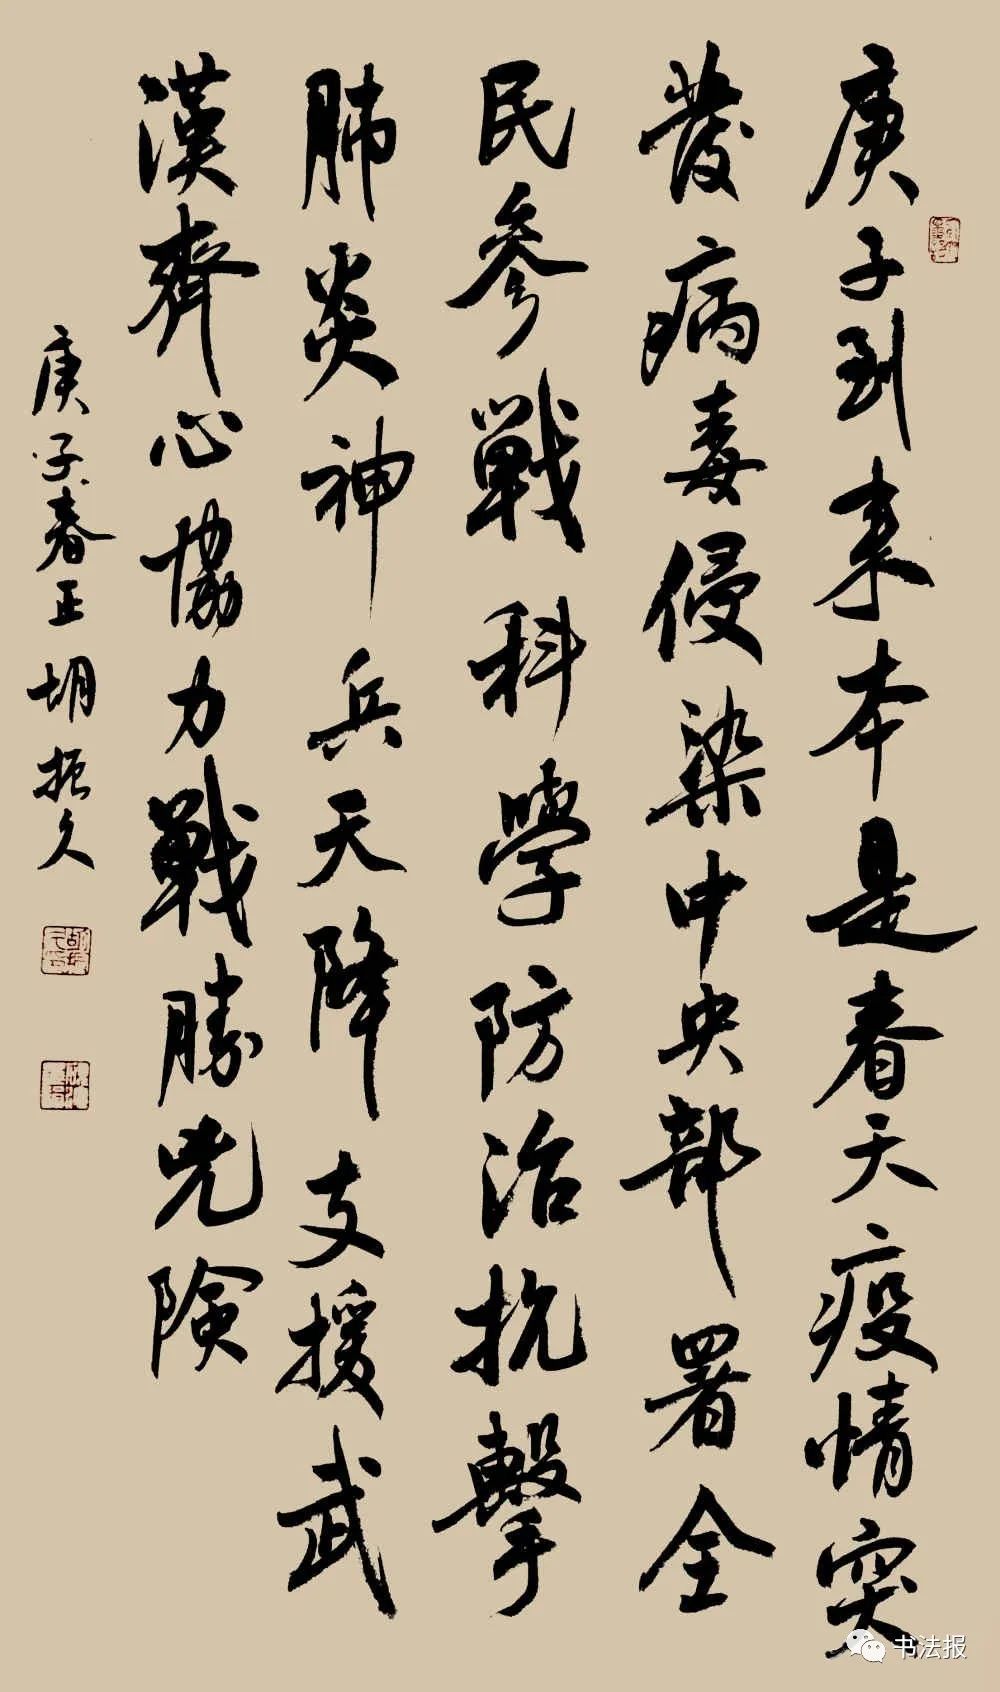 庚子到来本是春天疫情突
發病毒侵染中央部署全
民参戰科學防治抗擊
肺炎神兵天降支援武
漢齊心協力戰勝兇険
庚子春正胡振久
书法报